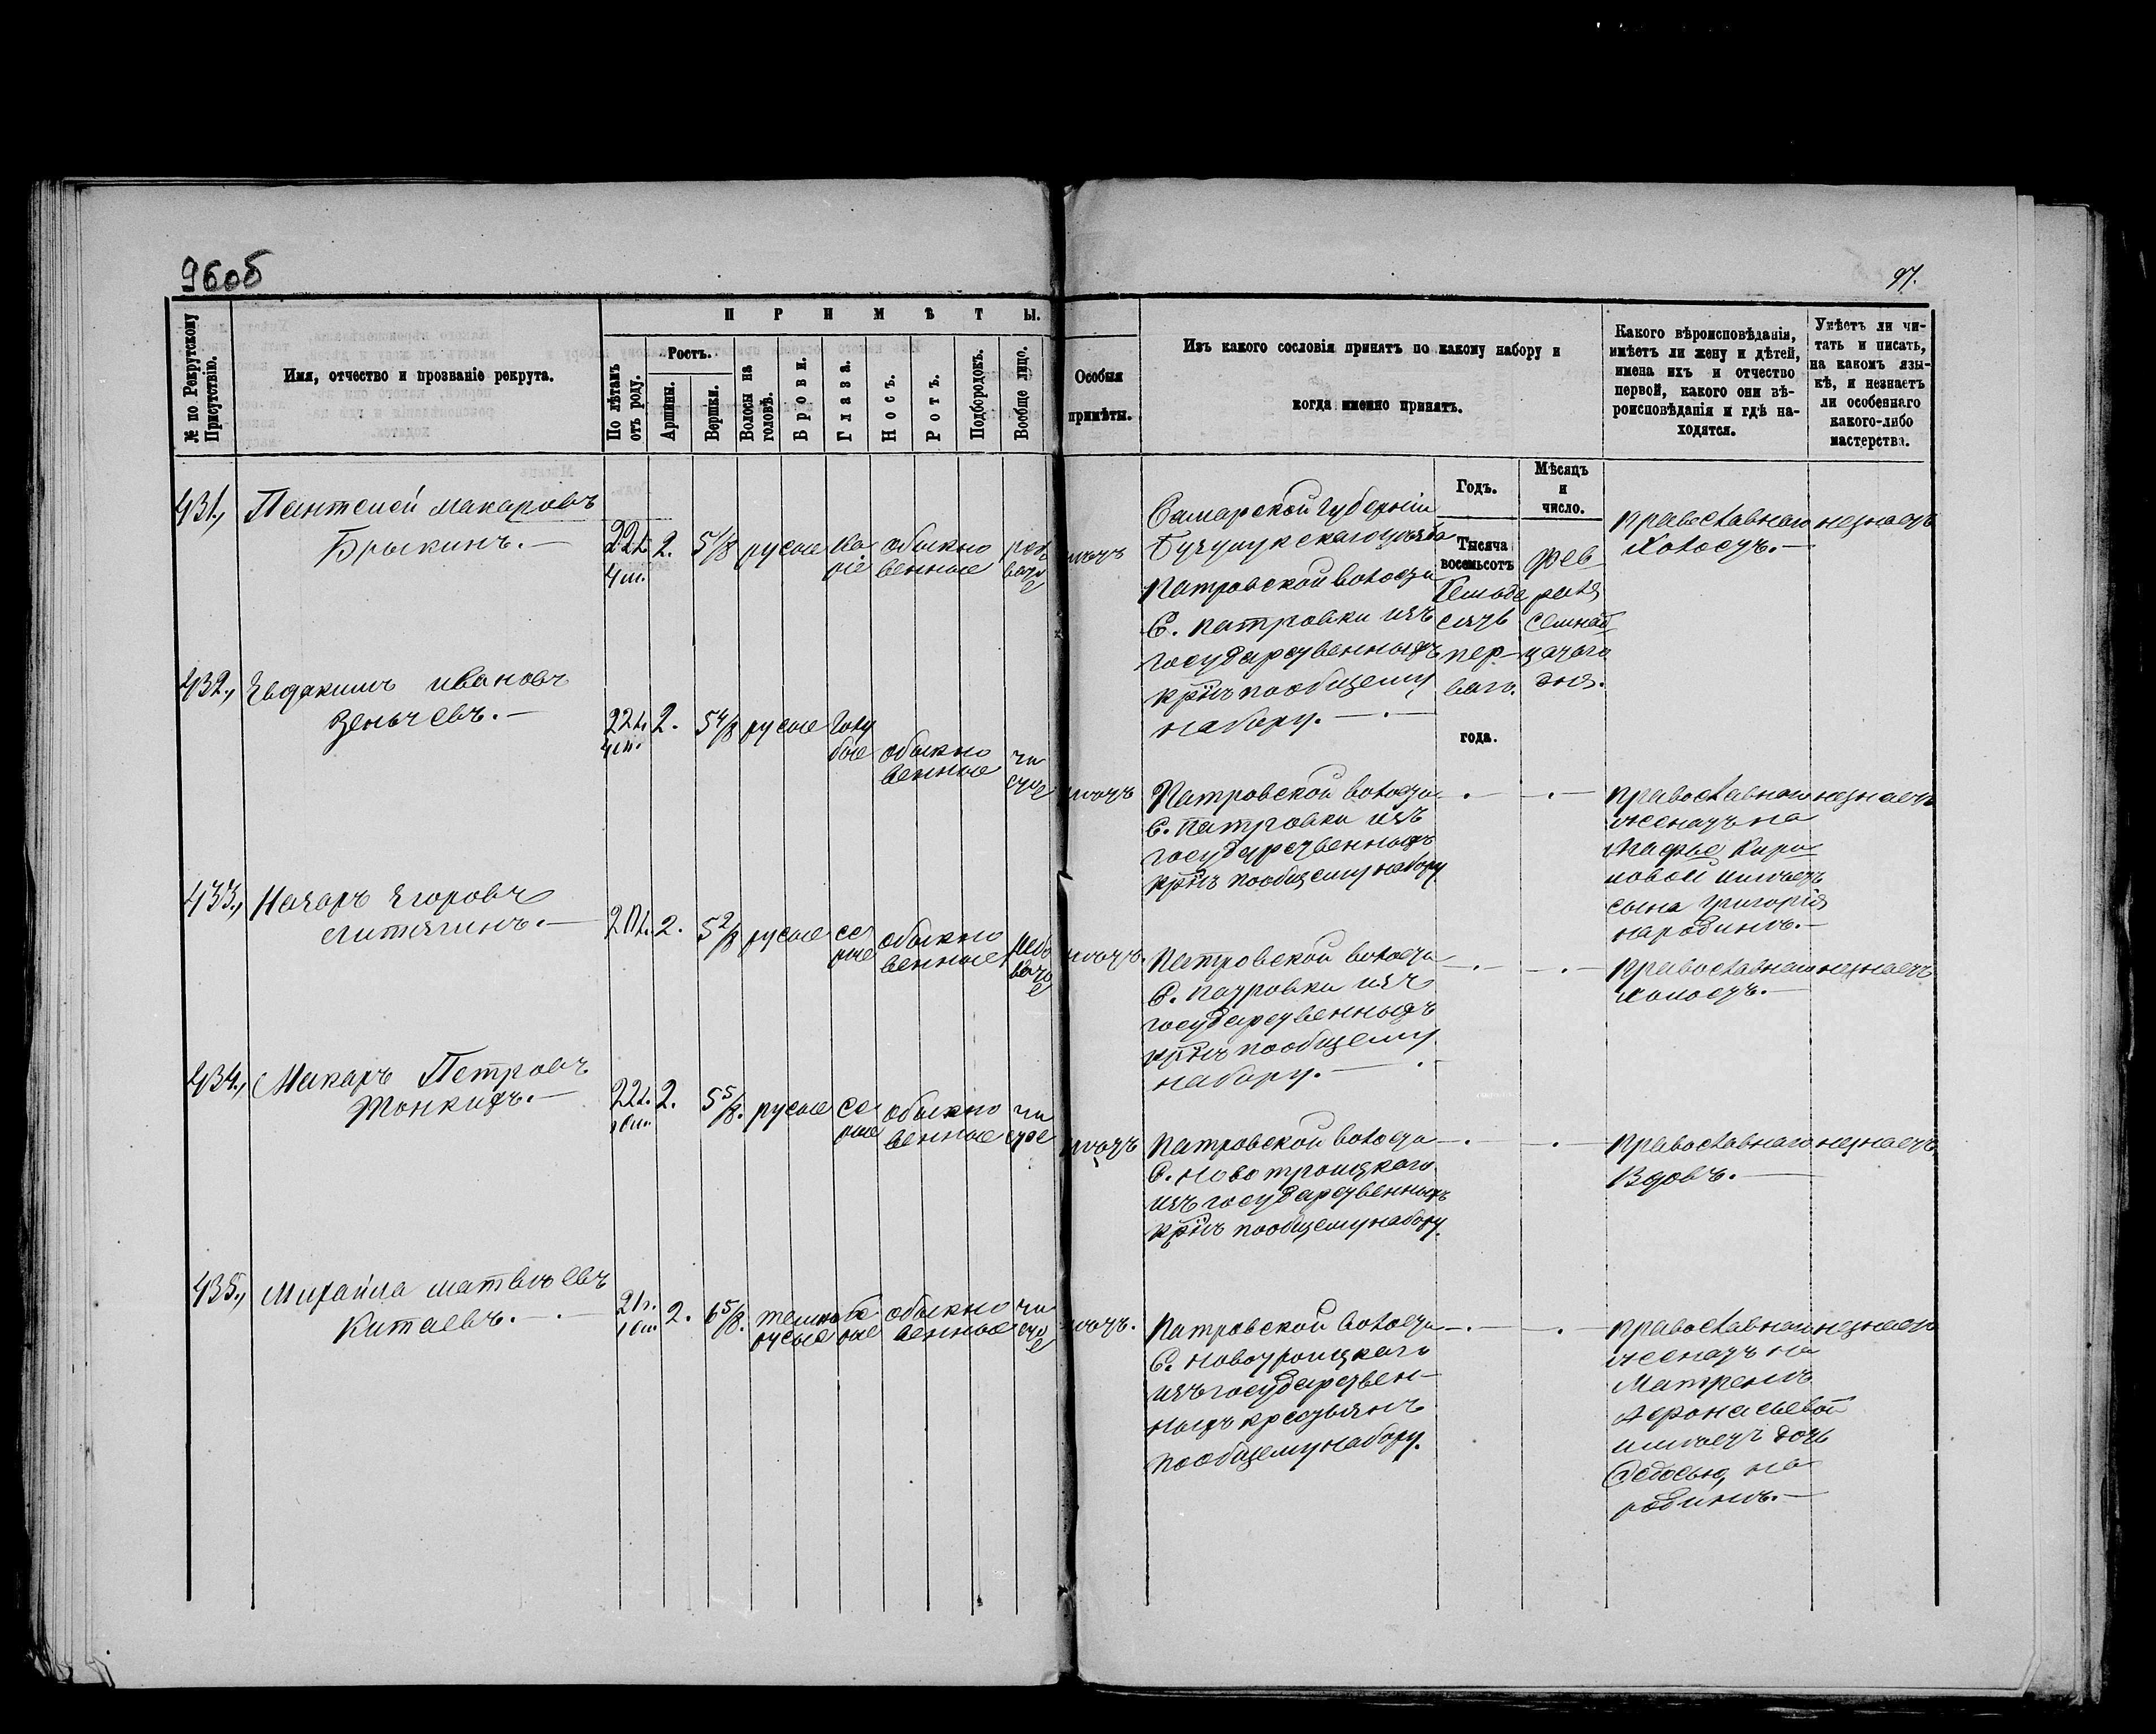 96об
97.
№ по Рекрутскому Присутствію.
Имя, отчество и прозваніе рекрута.
ПРИМѢТЫ.
По лѣтамъ отъ роду.
Ростъ.
Аршины.
Вершки.
Волосы на головѣ.
Брови.
Глаза.
Носъ.
Ротъ.
Подбородокъ.
Вообще лицо.
Особыя
примѣты.
Изъ какого сословія принятъ по какому набору и
когда именно принятъ.
Какого вѣроисповѣданія,
имѣетъ ли жену и дѣтей,
имена ихъ и отчество
первой, какого они вѣ-
роисповѣданія и гдѣ на-
ходятся.
Умѣетъ ли чи-
тать и писать,
на какомъ язы-
кѣ, и незнаетъ
ли особеннаго
какого-либо
мастерства.
Годъ.
Мѣсяцъ
и
число.
431., Пантелей Макаровъ
Брыкинъ. —
22л. 2. 5 1/8 русые ка
4 м. ріе
обыкно
венные
рябо
вато
е
нѣтъ
Самарской губерніи
Бузулукскаго уѣзда
Патровской волости
С. Патровки изъ
государственныхъ
крнъ по общему
набору. —
Тысяча
восемьсотъ
Семьде
сятъ
пер
ваго.
года.
Фев
раля
семнад
цатаго
дня.
православнаго
Холостъ. —
незнаетъ
432., Евдакимъ Ивановъ
22л. 2. 5 4/8 русые голу
4 м. бые
обыкно
венные
чи
стое
нѣтъ
Патровской волости
С. Патровки изъ
государственныхъ
крнъ по общему набору
православнаго
женатъ на
Кири
ловой имѣетъ
сына Григорія
на родинѣ. —
незнаетъ
433., Назаръ Егоровъ
Литягинъ. —
21л. 2. 5 2/8 русые се
рые
обыкно
венные
рябо
вато
е
нѣтъ.
Патровской волости
С. Патровки изъ
государственныхъ
крнъ по общему
набору. —
православнаго
холостъ. —
незнаетъ
434., Макаръ Петровъ
Тонкихъ. —
22л. 2. 5 5/8. русые се
рые
обыкно
венные
чи
стое
нѣтъ
Патровской волости
С. Ново троицкаго
изъ государственныхъ
крнъ по общему набору.
православнаго
Вдовъ. —
незнаетъ
435., Михайла Матвѣевъ
Китаевъ. —
2. 6 5/8. темно
русые
обыкно
венные
чи
сто
е
нѣтъ.
Патровской волости
С. Новотроицкаго
изъ государствен-
ныхъ крестьянъ
по общему набору.
православнаго
женатъ на
Матренѣ
Афонасьевой
имѣетъ дочь
Федосью, на
родинѣ. —
незнаетъ